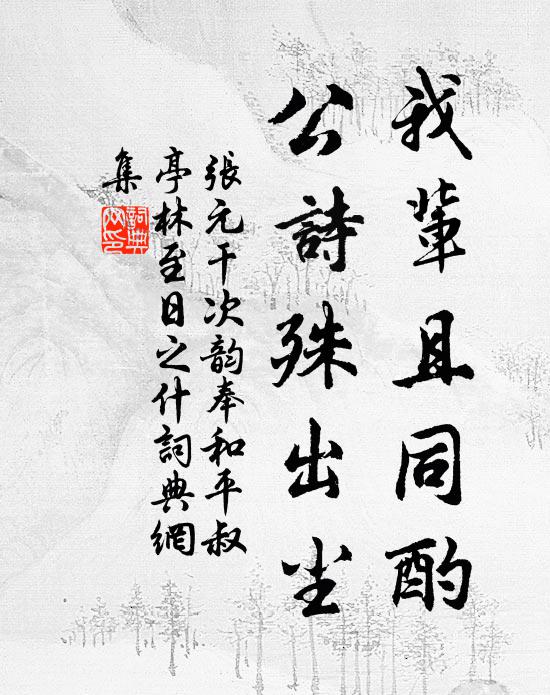 我輩且同酌
公詩殊出尘
張元干次韵奉和平叔
亭林至日之什詞典網
集
詞典网印